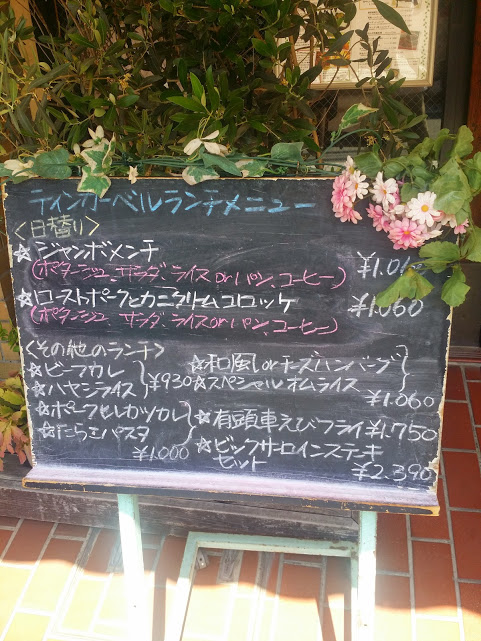 ラインガーベルランチメニュー
〈日替り〉
☆ジャンボメンチ
(ポタージュ、サラダ、ライスorパン、コーヒー)
☆ローストポークとカニクリームコロッケ ¥1.060
(ポタージュ サラダ、ライスorパン、コーヒー)
〈その他のランチ〉
☆ビーフカレー
☆ハヤシライス ¥930
☆ポークヒレカツカレー
☆たらこパスタ
¥1.000
☆和風orチーズハンバーグ
☆スペシャルオムライス
¥1.060
☆有頭車えびフライ ¥1.750
☆ビックサーロインステーキ
セット ¥2.390